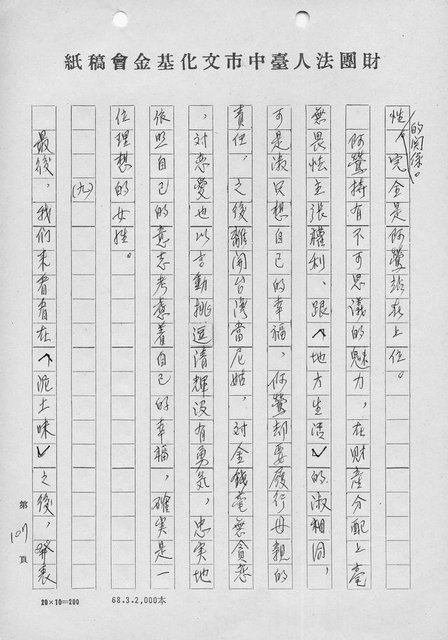 財團法人臺中市文化基金會稿紙
性的關係。完全是阿鶯站在上位。
阿鶯持有不可思議的魅力，在財產分配上毫
無畏怯主張權利、跟〈地方生活〉的淑相同，
可是淑只想自己的幸福，阿鶯却要履行母親的
責任，之後離開台灣當尼姑，對金錢毫無貪戀
，對戀愛也以言動挑逗清輝沒有勇氣，忠實地
依照自己的意志考慮着自己的幸福，確實是一
位理想的女性。
(九)
最後，我們來看看在〈泥土味〉之後，發表
第107頁
20×10=200
68.3.2,000本